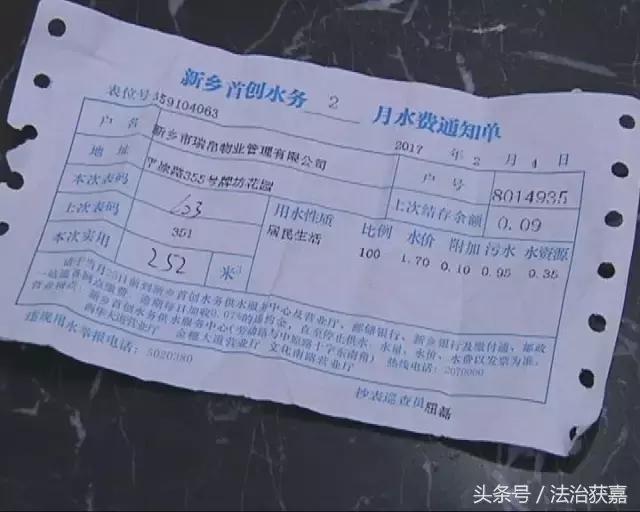 新乡首创水务 2 月水费通知单
表位号 359104063
2017 年 2 月 4 日
户名 新乡市瑞帛物业管理有限公司
户号 8014935
地址 平原路355号牌坊花园
上次结存余额 0.09
本次表码 603
用水性质 比例 水价 附加 污水 水资源
上次表码 351
居民生活 100 1.70 0.10 0.95 0.35
本次实用 252 米³
请于当月25日前到新乡首创水务供水服务中心及营业厅、邮储银行、新乡银行及缴付通、邮政
一站通各网点缴费，逾期每日加收0.07%的违约金，直至停止供水。水量、水价、水费以发票为准。
营业网点：新乡首创水务供水服务中心(劳动路与中原路十字东南角) 热线电话：2070000
西华大道营业厅 金穗大道营业厅 文化南路营业厅
违规用水举报电话：5020380
抄表巡查员 屈磊
头条号／法治获嘉